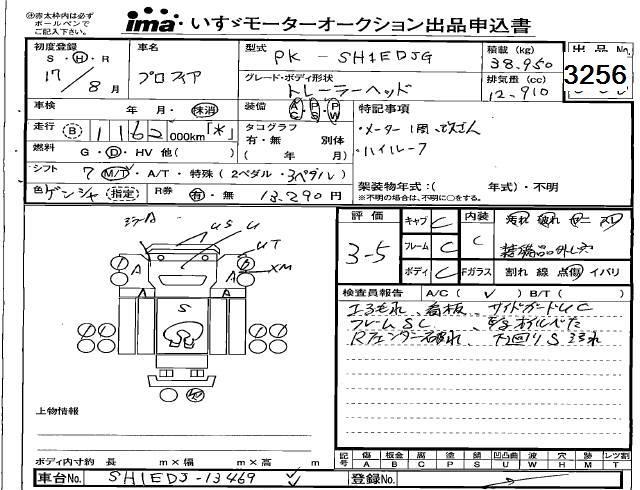 ※赤太枠内は必ず
ボールペンで
ご記入下さい。
ima いすゞモーターオークション出品申込書
初度登録
S・H・R
17 / 8 月
車名
プロフィア
型式
PK - SH1EDJG
積載 (kg)
38,950
出品No.
3256
グレード・ボディ形状
トレーラーヘッド
排気量 (cc)
12,910
車検
年 月・抹消
装備
AC・PS・PW
特記事項
走行 (B) 1162 000km「*」
タコグラフ
有・無 別体
( 年 月)
・メーター1周
・ハイルーフ
燃料 G・D・HV 他( )
シフト 7 M/T・A/T・特殊 (2ペダル・3ペダル)
架装物年式:( 年式)・不明
※不明の場合は、不明に○をする。
色 ゲンシャ (指定) R券 有・無 13,290円
評価
3-5
キャブ C
フレーム C
ボディ C
内装
C
Fガラス 割れ 線 点傷 イバリ
検査員報告 A/C( ✓ ) B/T( )
エアもれ、看板、サイドガードUC
フレームSC
下回りS
US
U
UT
XM
A
A
A
A
S
上物情報
ボディ内寸約 長 m×幅 m×高 m
記号 傷 A 板金 B 腐 C 塗 P 錆 S 凹凸曲 U 波 W 穴 H 跡 M レツ割 T
車台No. SH1EDJ-13469
登録No.